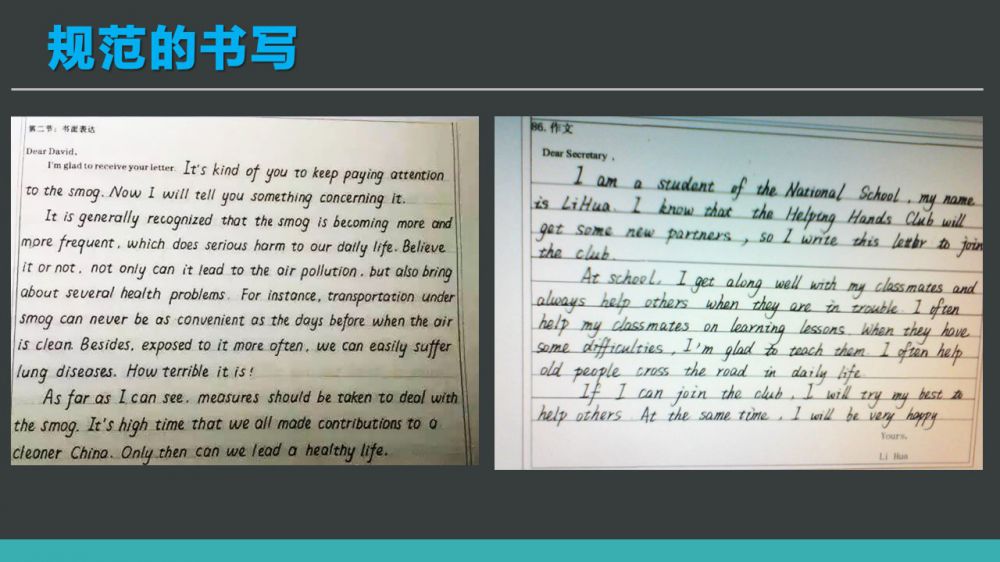 规范的书写
第二节：书面表达
Dear David,
I'm glad to receive your letter. It's kind of you to keep paying attention
to the smog. Now I will tell you something concerning it.
It is generally recognized that the smog is becoming more and
more frequent, which does serious harm to our daily life. Believe
it or not, not only can it lead to the air pollution, but also bring
about several health problems. For instance, transportation under
smog can never be as convenient as the days before when the air
is clean. Besides, exposed to it more often, we can easily suffer
lung diseases. How terrible it is!
As far as I can see, measures should be taken to deal with
the smog. It's high time that we all made contributions to a
cleaner China. Only then can we lead a healthy life.
86. 作文
Dear Secretary,
I am a student of the National School, my name
is LiHua. I know that the Helping Hands Club will
get some new partners, so I write this letter to join
the club.
At school, I get along well with my classmates and
always help others when they are in trouble. I often
help my classmates on learning lessons. When they have
some difficulties, I'm glad to teach them. I often help
old people cross the road in daily life.
If I can join the club, I will try my best to
help others. At the same time, I will be very happy
Yours,
Li Hua